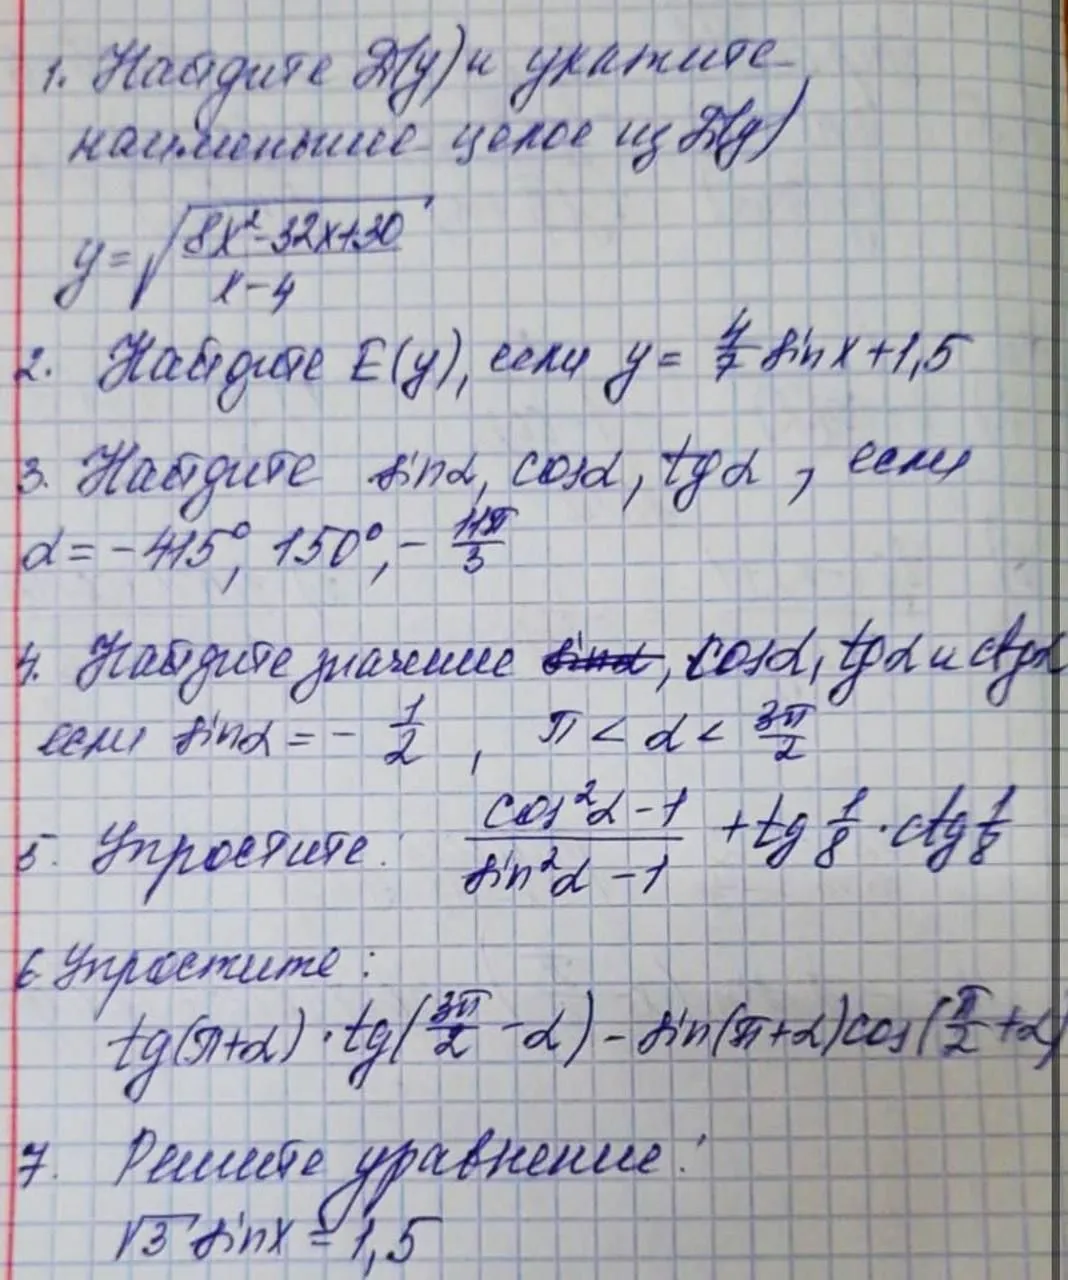 1. Найдите D(y) и укажите
наименьшее целое из D(y)
y = √((8x² - 32x + 30)/(x - 4))
2. Найдите E(y), если y = 4/7 sin x + 1,5
3. Найдите sin α, cos α, tg α, если
α = -415°, 150°, -11π/3
4. Найдите значение cos α, tg α и ctg α
если sin α = -1/2, π < α < 3π/2
5. Упростите: (cos²α - 1)/(sin²α - 1) + tg 1/8 · ctg 1/8
6. Упростите:
tg(π+α) · tg(3π/2 - α) - sin(π+α)cos(π/2 + α)
7. Решите уравнение:
√3 sin x = 1,5